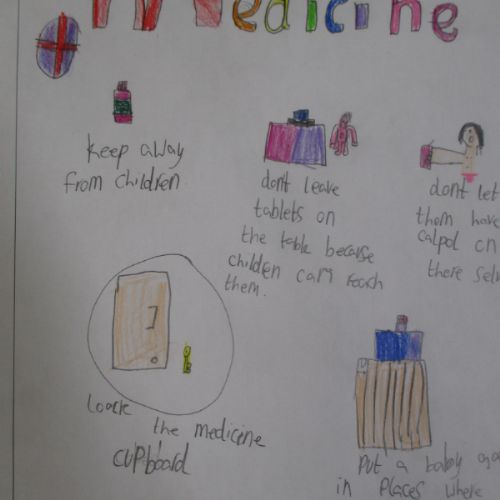 Medicine
keep away
from children.
dont leave
tablets on
the table because
children can reach
them.
dont let
them have
calpol on
there selv
loack the medicine
cupboard
put a baby
in places where